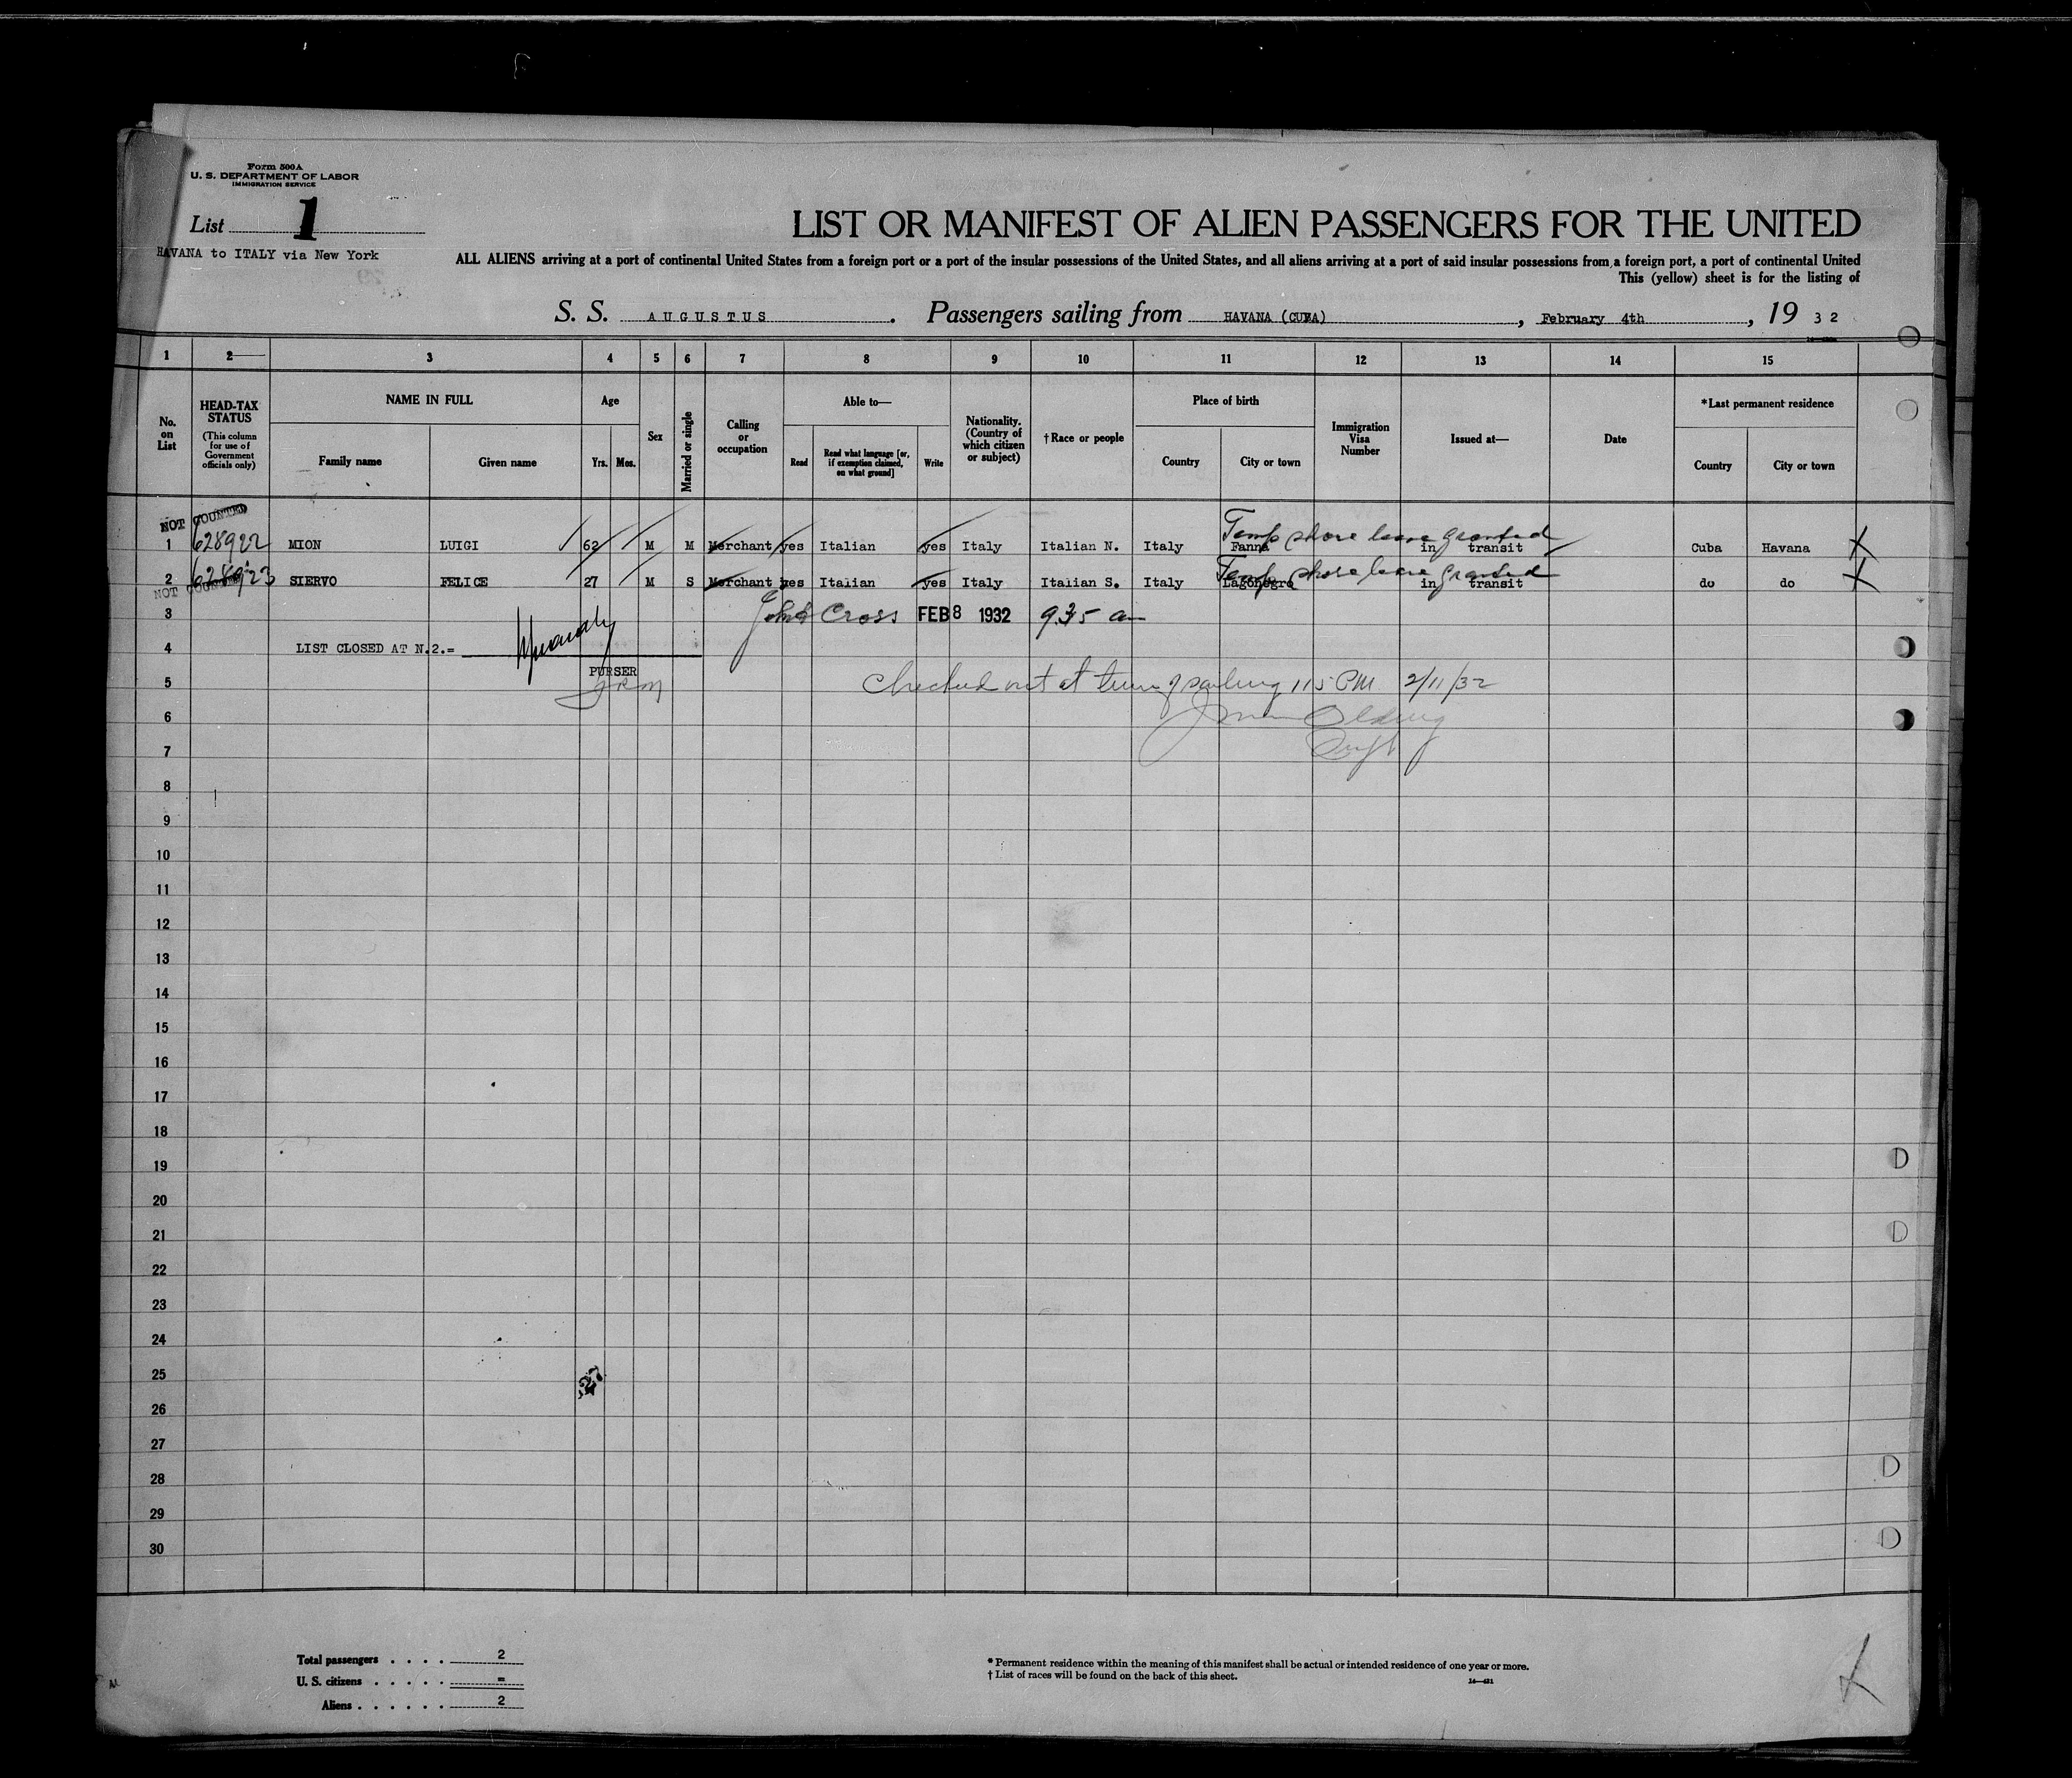 Form 500 A
U. S. DEPARTMENT OF LABOR
IMMIGRATION SERVICE
List 1
HAVANA to ITALY via New York
LIST OR MANIFEST OF ALIEN PASSENGERS FOR THE UNITED
ALL ALIENS arriving at a port of continental United States from a foreign port or a port of the insular possessions of the United States, and all aliens arriving at a port of said insular possessions from a foreign port, a port of continental United
This (yellow) sheet is for the listing of
S. S. AUGUSTUS. Passengers sailing from HAVANA (CUBA), February 4th, 19 32
1 2 3 4 5 6 7 8 9 10 11 12 13 14 15
No. on List
HEAD-TAX STATUS
(This column for use of Government officials only)
NAME IN FULL
Family name Given name
Age
Yrs. Mos.
Sex
Married or single
Calling or occupation
Able to—
Read
Read what language [or, if exemption claimed, on what ground]
Write
Nationality. (Country of which citizen or subject)
† Race or people
Place of birth
Country City or town
Immigration Visa Number
Issued at—
Date
*Last permanent residence
Country City or town
NOT COUNTED
Temp shore leave granted
1 628922 MION LUIGI 62 M M Merchant yes Italian yes Italy Italian N. Italy Fanna in transit Cuba Havana X
Temp shore leave granted
2 628923 SIERVO FELICE 27 M S Merchant yes Italian yes Italy Italian S. Italy Lagonegro in transit do do X
NOT COUNTED
3 Cross FEB 8 1932 9.35 a
4 LIST CLOSED AT N.2.=
PURSER
5 Checked out at time of sailing 115 PM 2/11/32
6
7
8
9
10
11
12
13
14
15
16
17
18
19
20
21
22
23
24
25
26
27
28
29
30
Total passengers . . . . 2
U. S. citizens . . . . . =
Aliens . . . . . . 2
* Permanent residence within the meaning of this manifest shall be actual or intended residence of one year or more.
† List of races will be found on the back of this sheet.